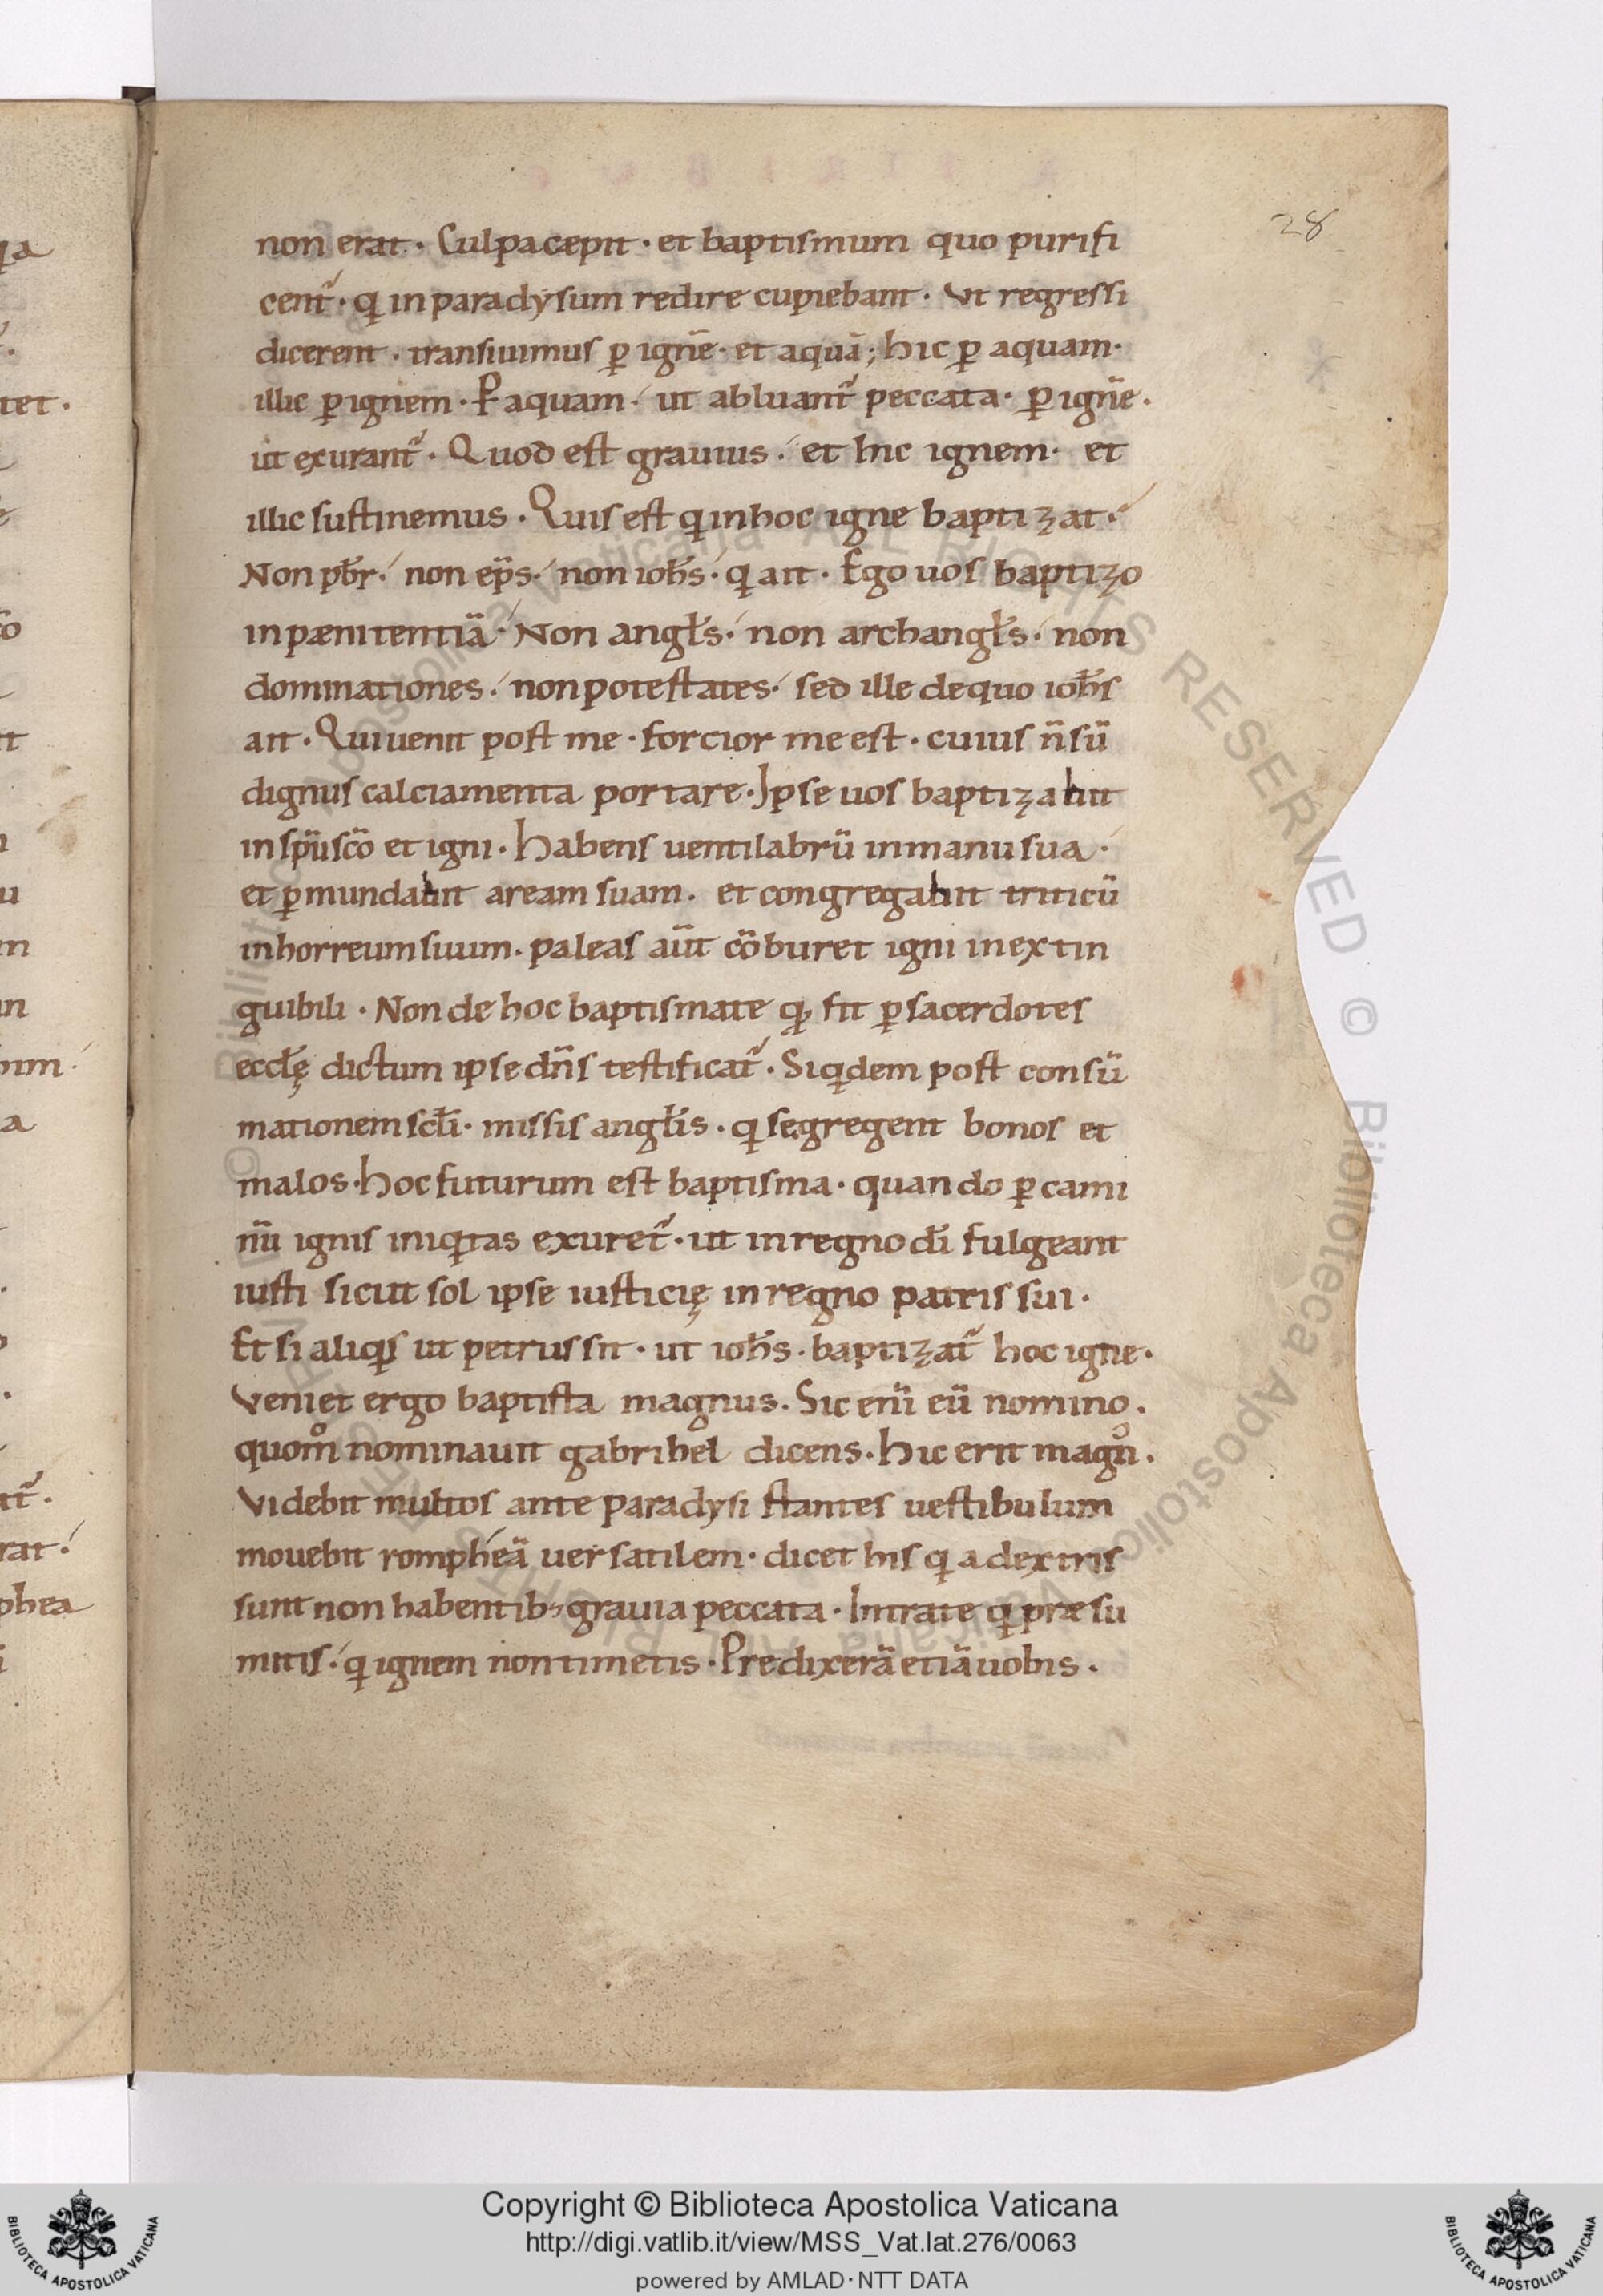 28
non erat · Culpa cæpit · et baptismum quo purifi
cent᷒ · q̣ in paradysum redire cupiebant · Vt regressi
dicerent · transiuimus ꝑ ignē · et aquā; hic ꝑ aquam ·
illic ꝑ ignem · P̱ aquam · ut abluant᷒ peccata · ꝑ ignē ·
ut exurant᷒ · Quod est grauius · et hic ignem · et
illic sustinemus · Quis est q̣ in hoc igne baptizat ·
Non pb̄r · non ep̄s · non ioh̄s · q̣ ait · Ego uos baptizo
in pænitentiā · Non angl̄s · non archangl̄s · non
dominationes · non potestates · sed ille de quo ioh̄s
ait · Qui uenit post me · forcior me est · cuius n̄ sū
dignus calciamenta portare · Ipse uos baptizabit
in sp̄u sc̄o et igni · habens uentilabrū in manu sua ·
et ꝑmundabit aream suam · et congregabit triticū
in horreum suum · paleas aūt cōburet igni inextin
guibili · Non de hoc baptismate qđ fit ꝑ sacerdotes
eccl̄ę dictum ipse dn̄s testificat᷒ · Siq̣dem post consū
mationem scl̄i · missis angl̄is · q̣ segregent bonos et
malos · hoc futurum est baptisma · quando ꝑ cami
nū ignis iniq̣tas exuret᷒ · ut in regno dī fulgeant
iusti sicut sol ipse iusticię in regno patris sui ·
Et si aliq̣s ut petrus sit · ut ioh̄s · baptizat᷒ hoc igne ·
Veniet ergo baptista magnus · Sic enī eū nomino ·
quom̊ nominauit gabrihel dicens · hic erit magn̊ ·
Videbit multos ante paradysi stantes uestibulum
mouebit rompheā uersatilem · dicet his q̣ a dextris
sunt non habentib; grauia peccata · Intrate q̣ præsu
mitis · q̣ ignem non timetis · Predixerā etiā uobis ·
Copyright © Biblioteca Apostolica Vaticana
http://digi.vatlib.it/view/MSS_Vat.lat.276/0063
powered by AMLAD·NTT DATA